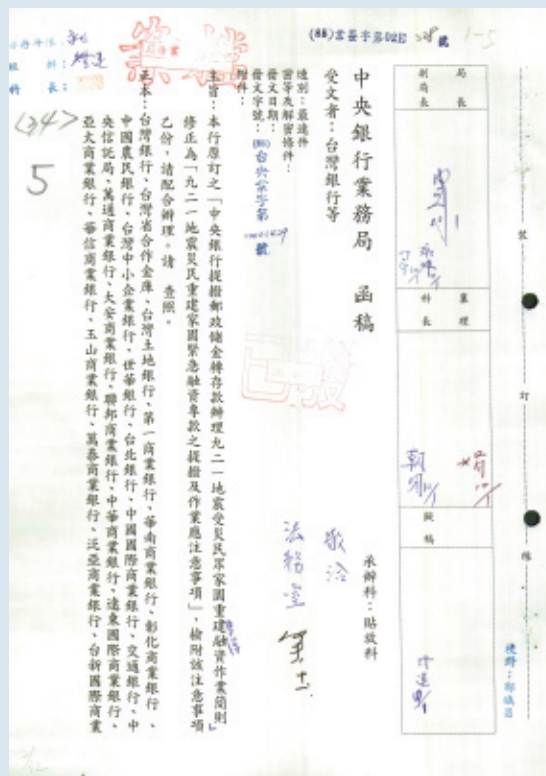 局長
副局長
襄理
科長
擬稿
裝
訂
線
校對：鄭儀昌
承辦科：貼放科
敬洽
法務室
中央銀行業務局　函稿
受文者：台灣銀行等
速別：最速件
密等及解密條件：
發文日期：
發文字號：(88)台央業字第 號
附件：
主旨：本行原訂之「中央銀行提撥郵政儲金轉存款辦理九二一地震受災民眾家園重建融資作業簡則」
修正為「九二一地震災民重建家園緊急融資專款之提撥及作業應注意事項」，檢附該注意事項
乙份，請配合辦理。請　查照。
正本：台灣銀行、台灣省合作金庫、台灣土地銀行、第一商業銀行、華南商業銀行、彰化商業銀行、
中國農民銀行、台灣中小企業銀行、世華銀行、台北銀行、中國國際商業銀行、交通銀行、中
央信託局、萬通商業銀行、大安商業銀行、聯邦商業銀行、中華商業銀行、遠東國際商業銀行、
亞太商業銀行、華信商業銀行、玉山商業銀行、萬泰商業銀行、泛亞商業銀行、台新國際商業
已發
<34>
5
1-5